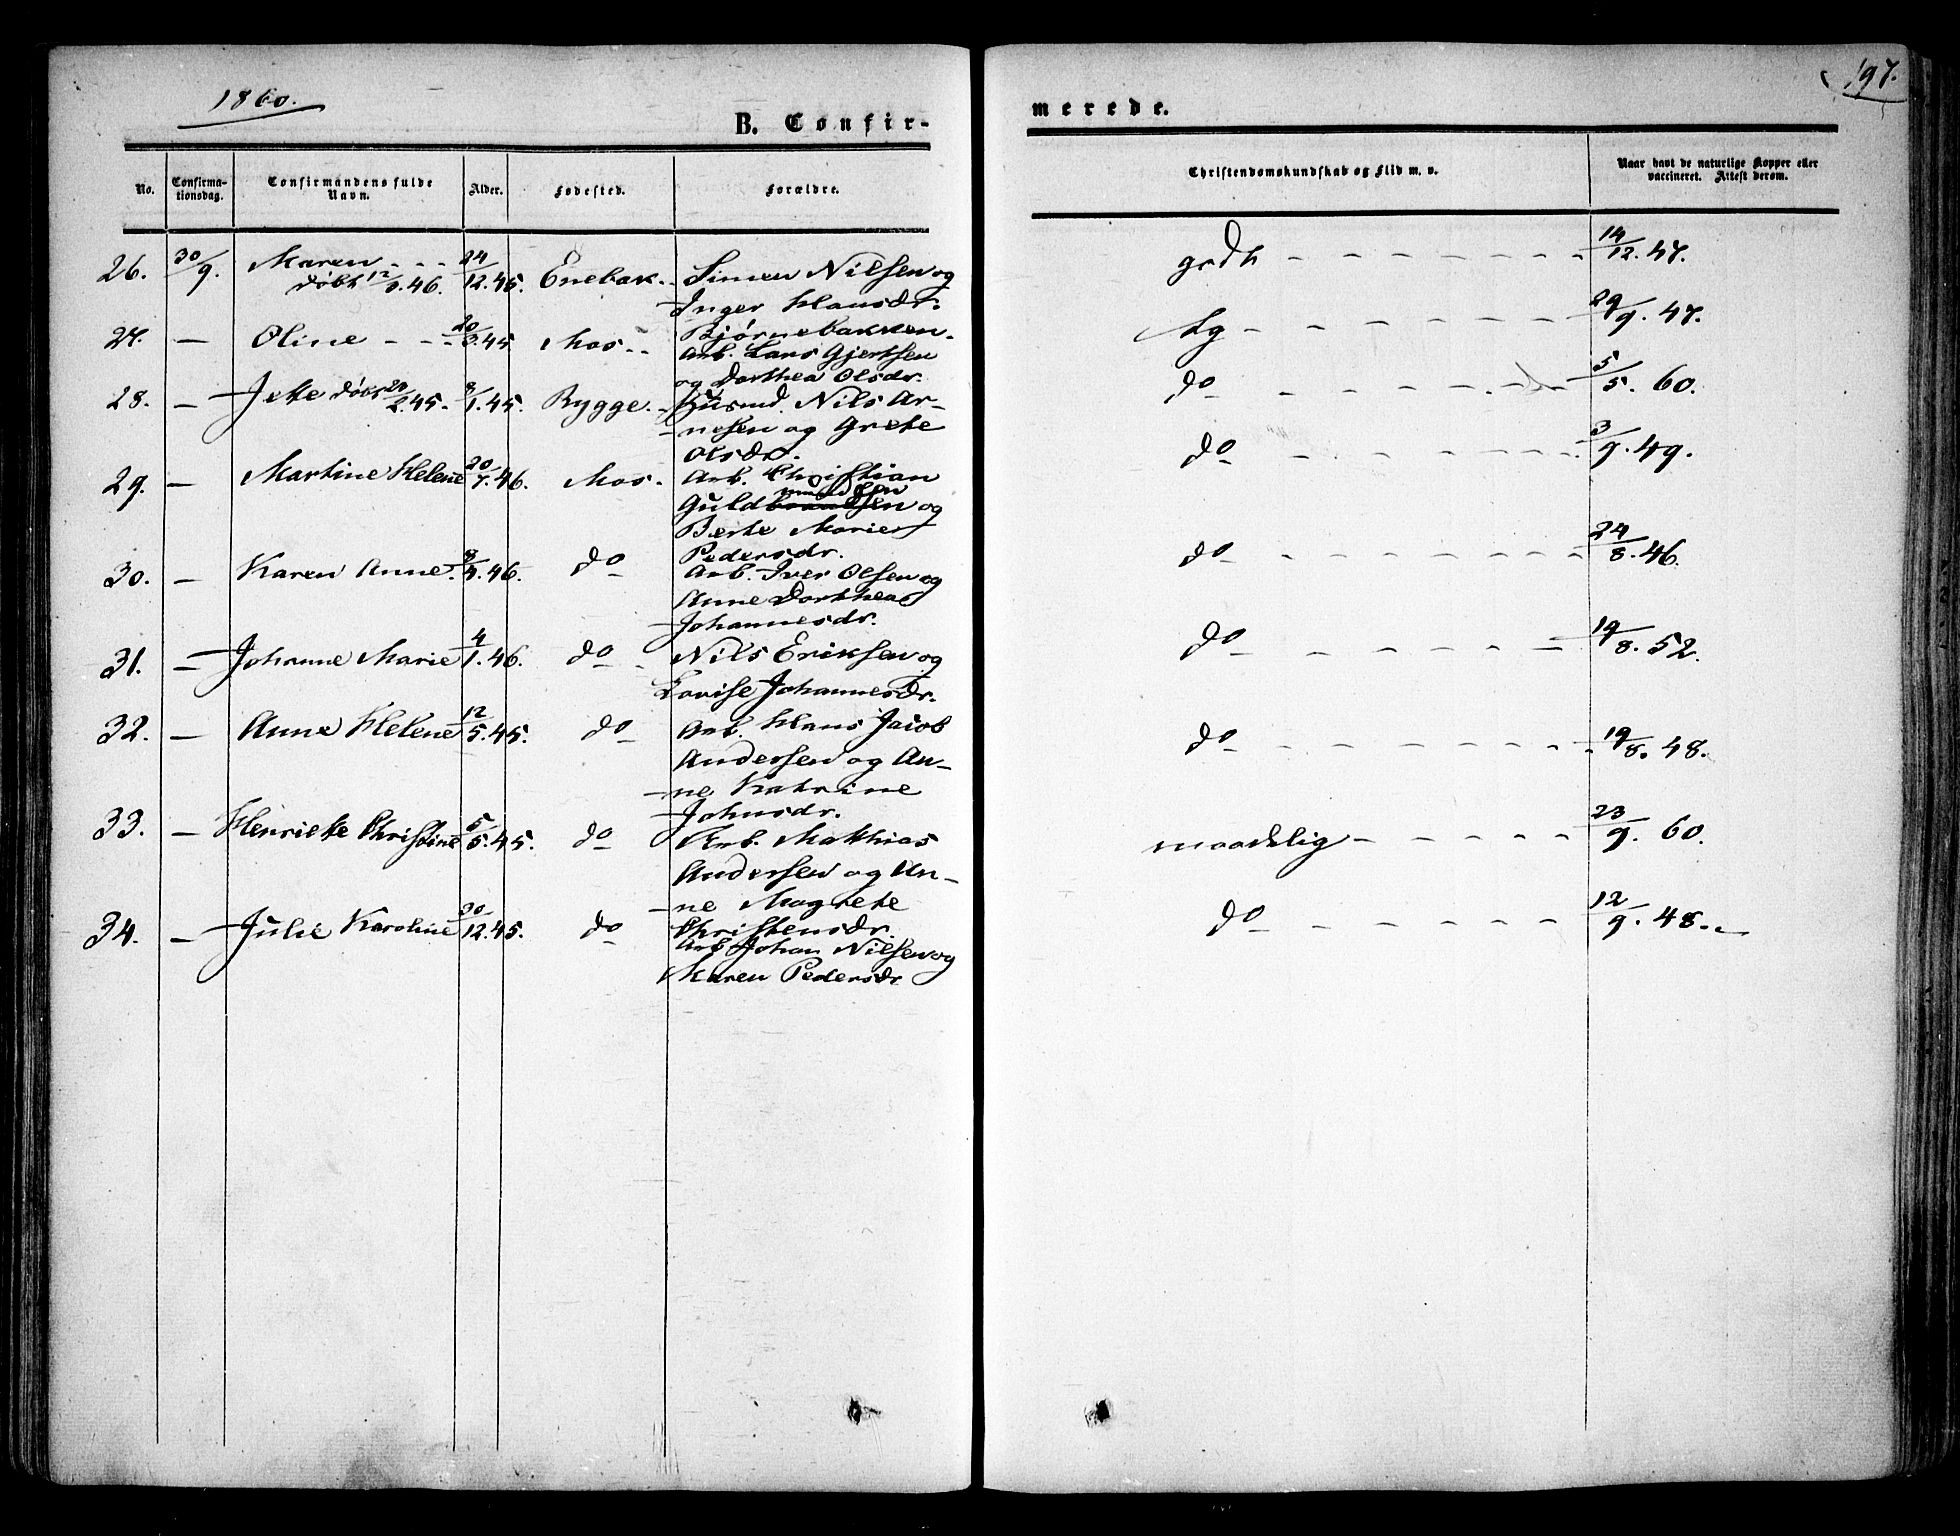 1860.
197.
B. Confir-
merede.
No.
Confirma-
tionsdag.
Confirmandens fulde
Navn.
Alder.
Fødested.
Forældre.
Christendomskundskab og Flid m. v.
Naar havt de naturlige Kopper eller
vaccineret. Attest derom.
26. 30/9. Maren - - - 24/12.45. Enebak. Simen Nilsen og godt - - - 14/12.47.
døbt 46.
Inger Hansdr.
Bjørnebakken.
27. — Oline - - - 20/3.45. Mos. Arb. Lars Gjertsen - - - 29/9.47.
og Dorthea Olsdr.
28. — Jette døbt 20/2.45. 8/1.45. Rygge. Husmd. Nils Ar- do - - - 5/5.60.
nesen og Grete
Olsdr.
29. — Martine Helene 20/7.46. Mos. Arb. Christian do - - - 3/9.49.
mundsen
Guldbrandsen og
Berte Marie
Pedersdr.
30. — Karen Anne. 8/4.46. do Arb. Iver Olsen og do - - - 24/8.46.
Anne Dorthea
Johannesdr.
31. — Johanne Marie 4/1.46. do Nils Eriksen og do - - - 19/8.52.
Lovise Johannesdr.
32. — Anne Helene 12/5.45. do Arb. Hans Jacob do - - - 19/8.48.
Andersen og An-
ne Katrine
Johnsdr.
33. — Henriete Christine 5/5.45. do Arb. Mathias maadelig - - - 23/9.60.
Andersen og An-
ne Magrete
Christensdr.
34. — Julie Karoline 30/12.45. do Arb. Johan Nilsen og do - - - 12/9.48.
Karen Pedersdr